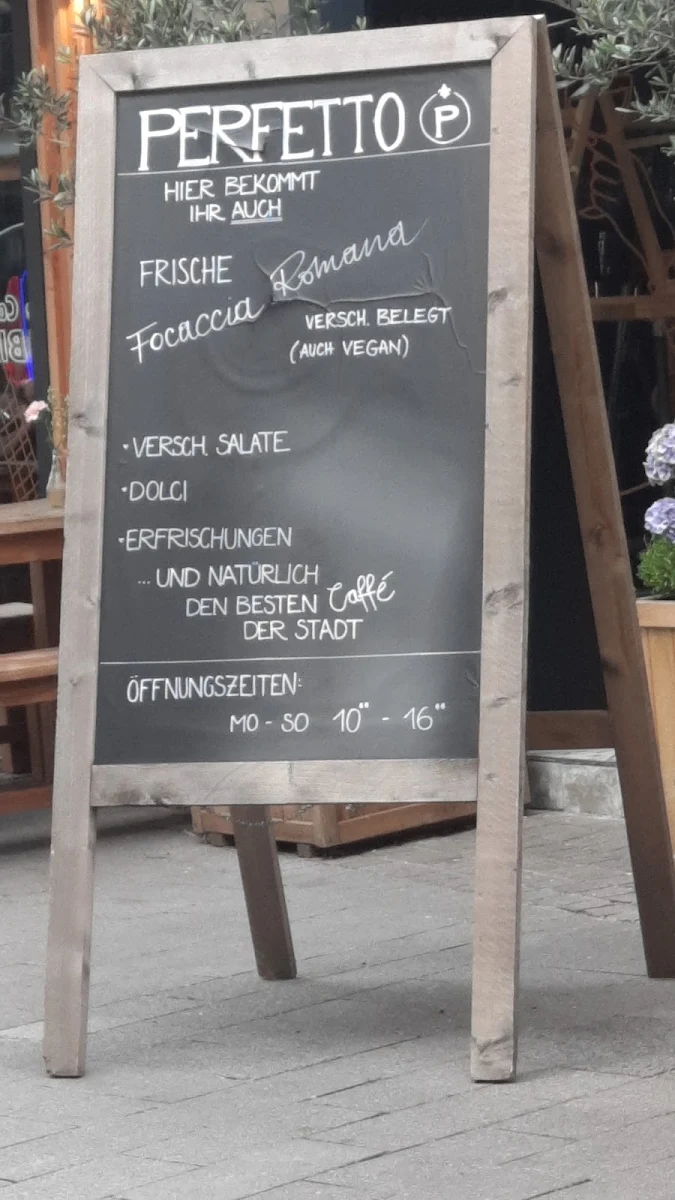 PERFETTO P
HIER BEKOMMT
IHR AUCH
FRISCHE
Focaccia Romana
VERSCH. BELEGT
(AUCH VEGAN)
• VERSCH. SALATE
• DOLCI
• ERFRISCHUNGEN
... UND NATÜRLICH
DEN BESTEN Caffé
DER STADT
ÖFFNUNGSZEITEN:
MO - SO 10°° - 16°°